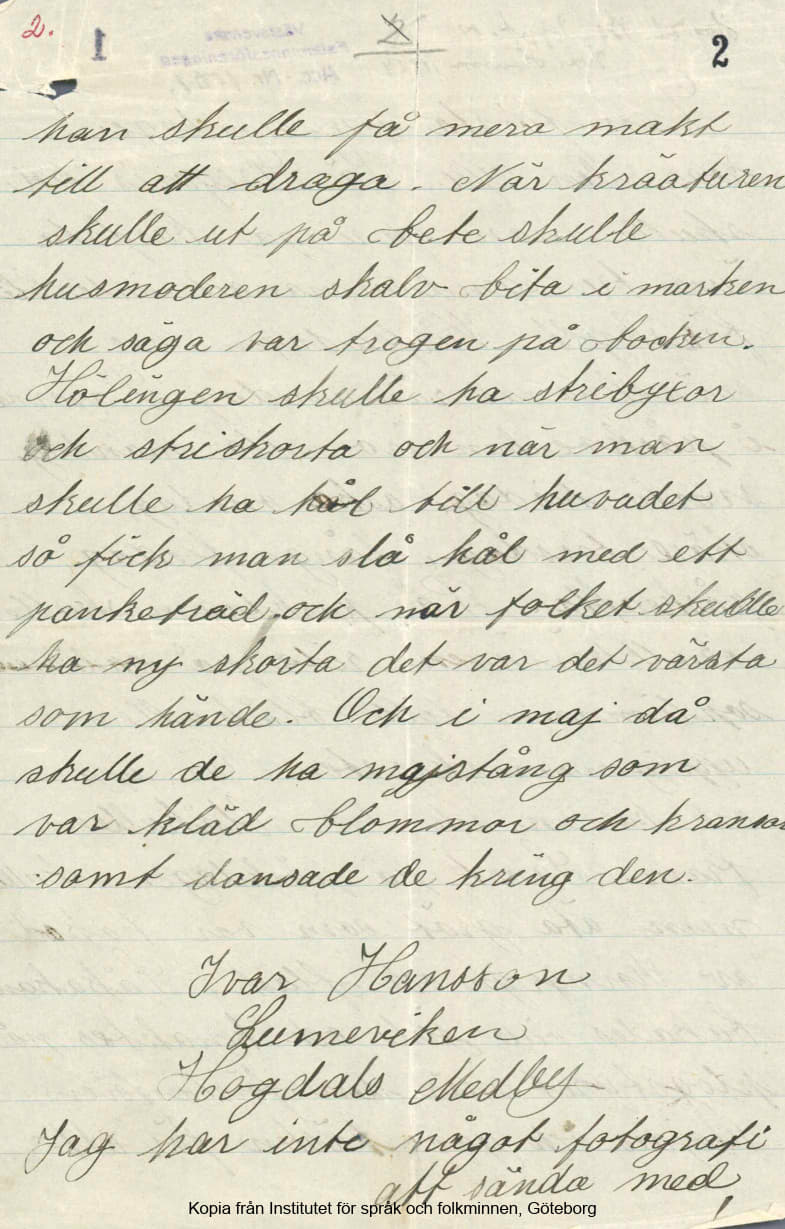 2.
1
2
2
han skulle få mera makt
till att draga. När kräaturen
skulle ut på bete skulle
husmoderen skalv bita i marken
och säga var trogen på bocken.
Hölingen skulle ha stribyxor
och striskorta och när man
skulle ha hål till huvudet
så fick man slå hål med ett
panketräd och när folket skulle
ha ny skorta det var det värsta
som hände. Och i maj då
skulle de ha majstång som
var kläd blommor och kransar
samt dansade de kring den.
Ivar Hansson
Lumeviken
Hogdals Medby
Jag har inte något fotografi
att sända med
Kopia från Institutet för språk och folkminnen, Göteborg